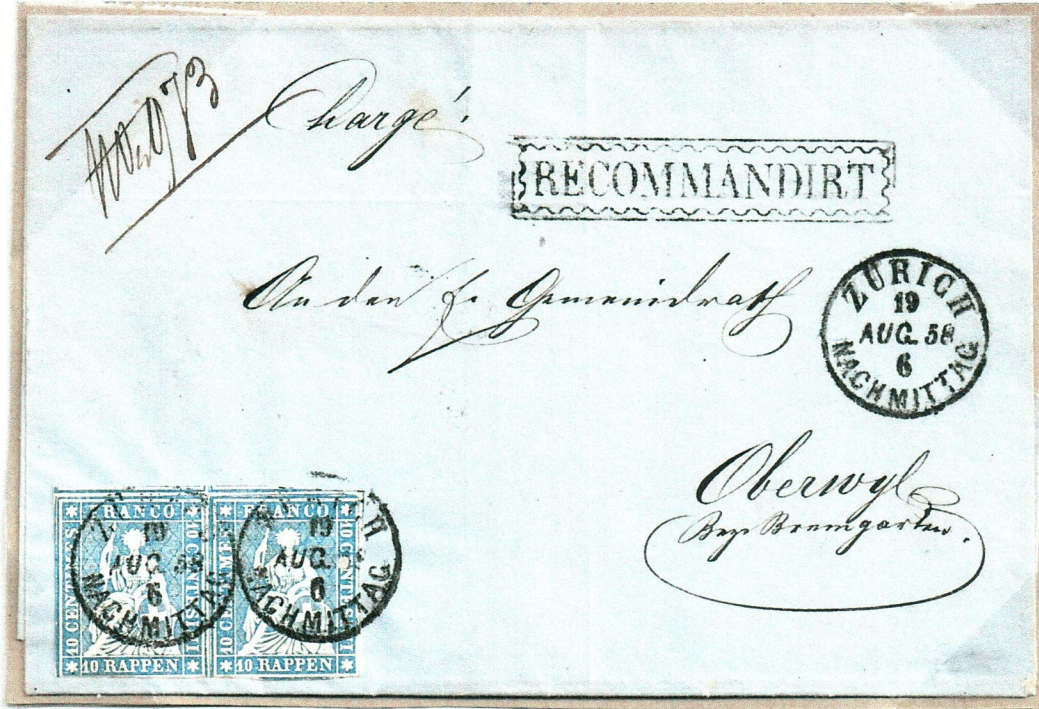 Chargé.
RECOMMANDIRT
An den
Gemeindrath
ZÜRICH
19
AUG. 58
6
NACHMITTAG
Oberwyl
Bez. Bremgarten.
FRANCO
10 CENTIMES
10 CENTISIMI
10 RAPPEN
19
AUG. 58
6
NACHMITTAG
FRANCO
10 CENTIMES
10 RAPPEN
19
AUG.
6
NACHMITTAG